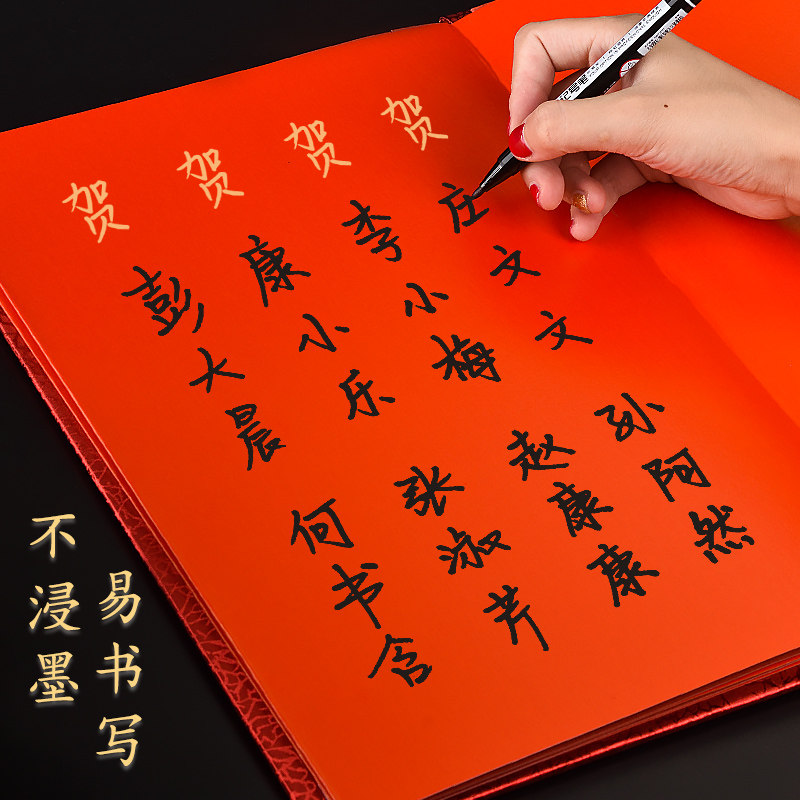 贺 贺 贺 贺
庄文文
李小梅
康小乐
彭大晨
孙阿然
赵康康
张淑芹
何书含
易书写
不浸墨
记号笔